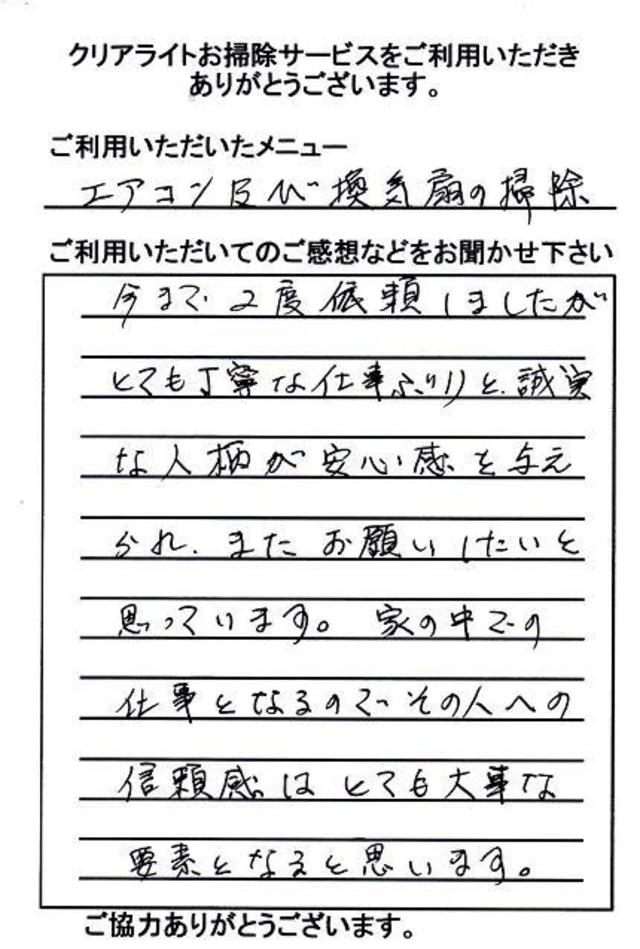 クリアライトお掃除サービスをご利用いただき
ありがとうございます。
ご利用いただいたメニュー
エアコン及び換気扇の掃除
ご利用いただいてのご感想などをお聞かせ下さい
今まで2度依頼しましたが
とても丁寧な仕事ぶりと、誠実
な人柄が安心感を与え
られ、またお願いしたいと
思っています。 家の中での
仕事となるので、その人への
信頼感はとても大事な
要素となると思います。
ご協力ありがとうございます。